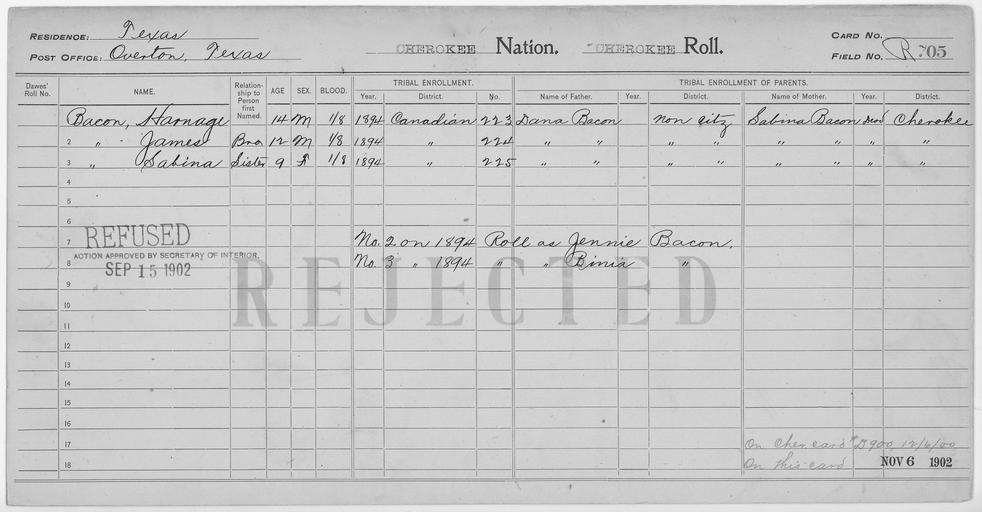 RESIDENCE: Texas
POST OFFICE: Overton, Texas
CHEROKEE Nation. CHEROKEE Roll.
CARD NO.
FIELD NO. R 705
Dawes' Roll No. NAME. Relationship to Person first Named. AGE SEX. BLOOD. TRIBAL ENROLLMENT. Year. District. No. TRIBAL ENROLLMENT OF PARENTS. Name of Father. Year. District. Name of Mother. Year. District.
Bacon, Harnage 14 M 1/8 1894 Canadian 223 Dana Bacon non citz Sabina Bacon Dead Cherokee
2 " James Bro 12 M 1/8 1894 " 224 " " " " " " " "
3 " Sabina Sister 9 F 1/8 1894 " 225 " " " " " " " "
4
5
6
7 No. 2 on 1894 Roll as Jennie Bacon.
8 No. 3 " 1894 " " Binia "
REFUSED
ACTION APPROVED BY SECRETARY OF INTERIOR.
SEP 15 1902
REJECTED
9
10
11
12
13
14
15
16
17 On Cher. card # D900, 12/6/00
18 On this card NOV 6 1902